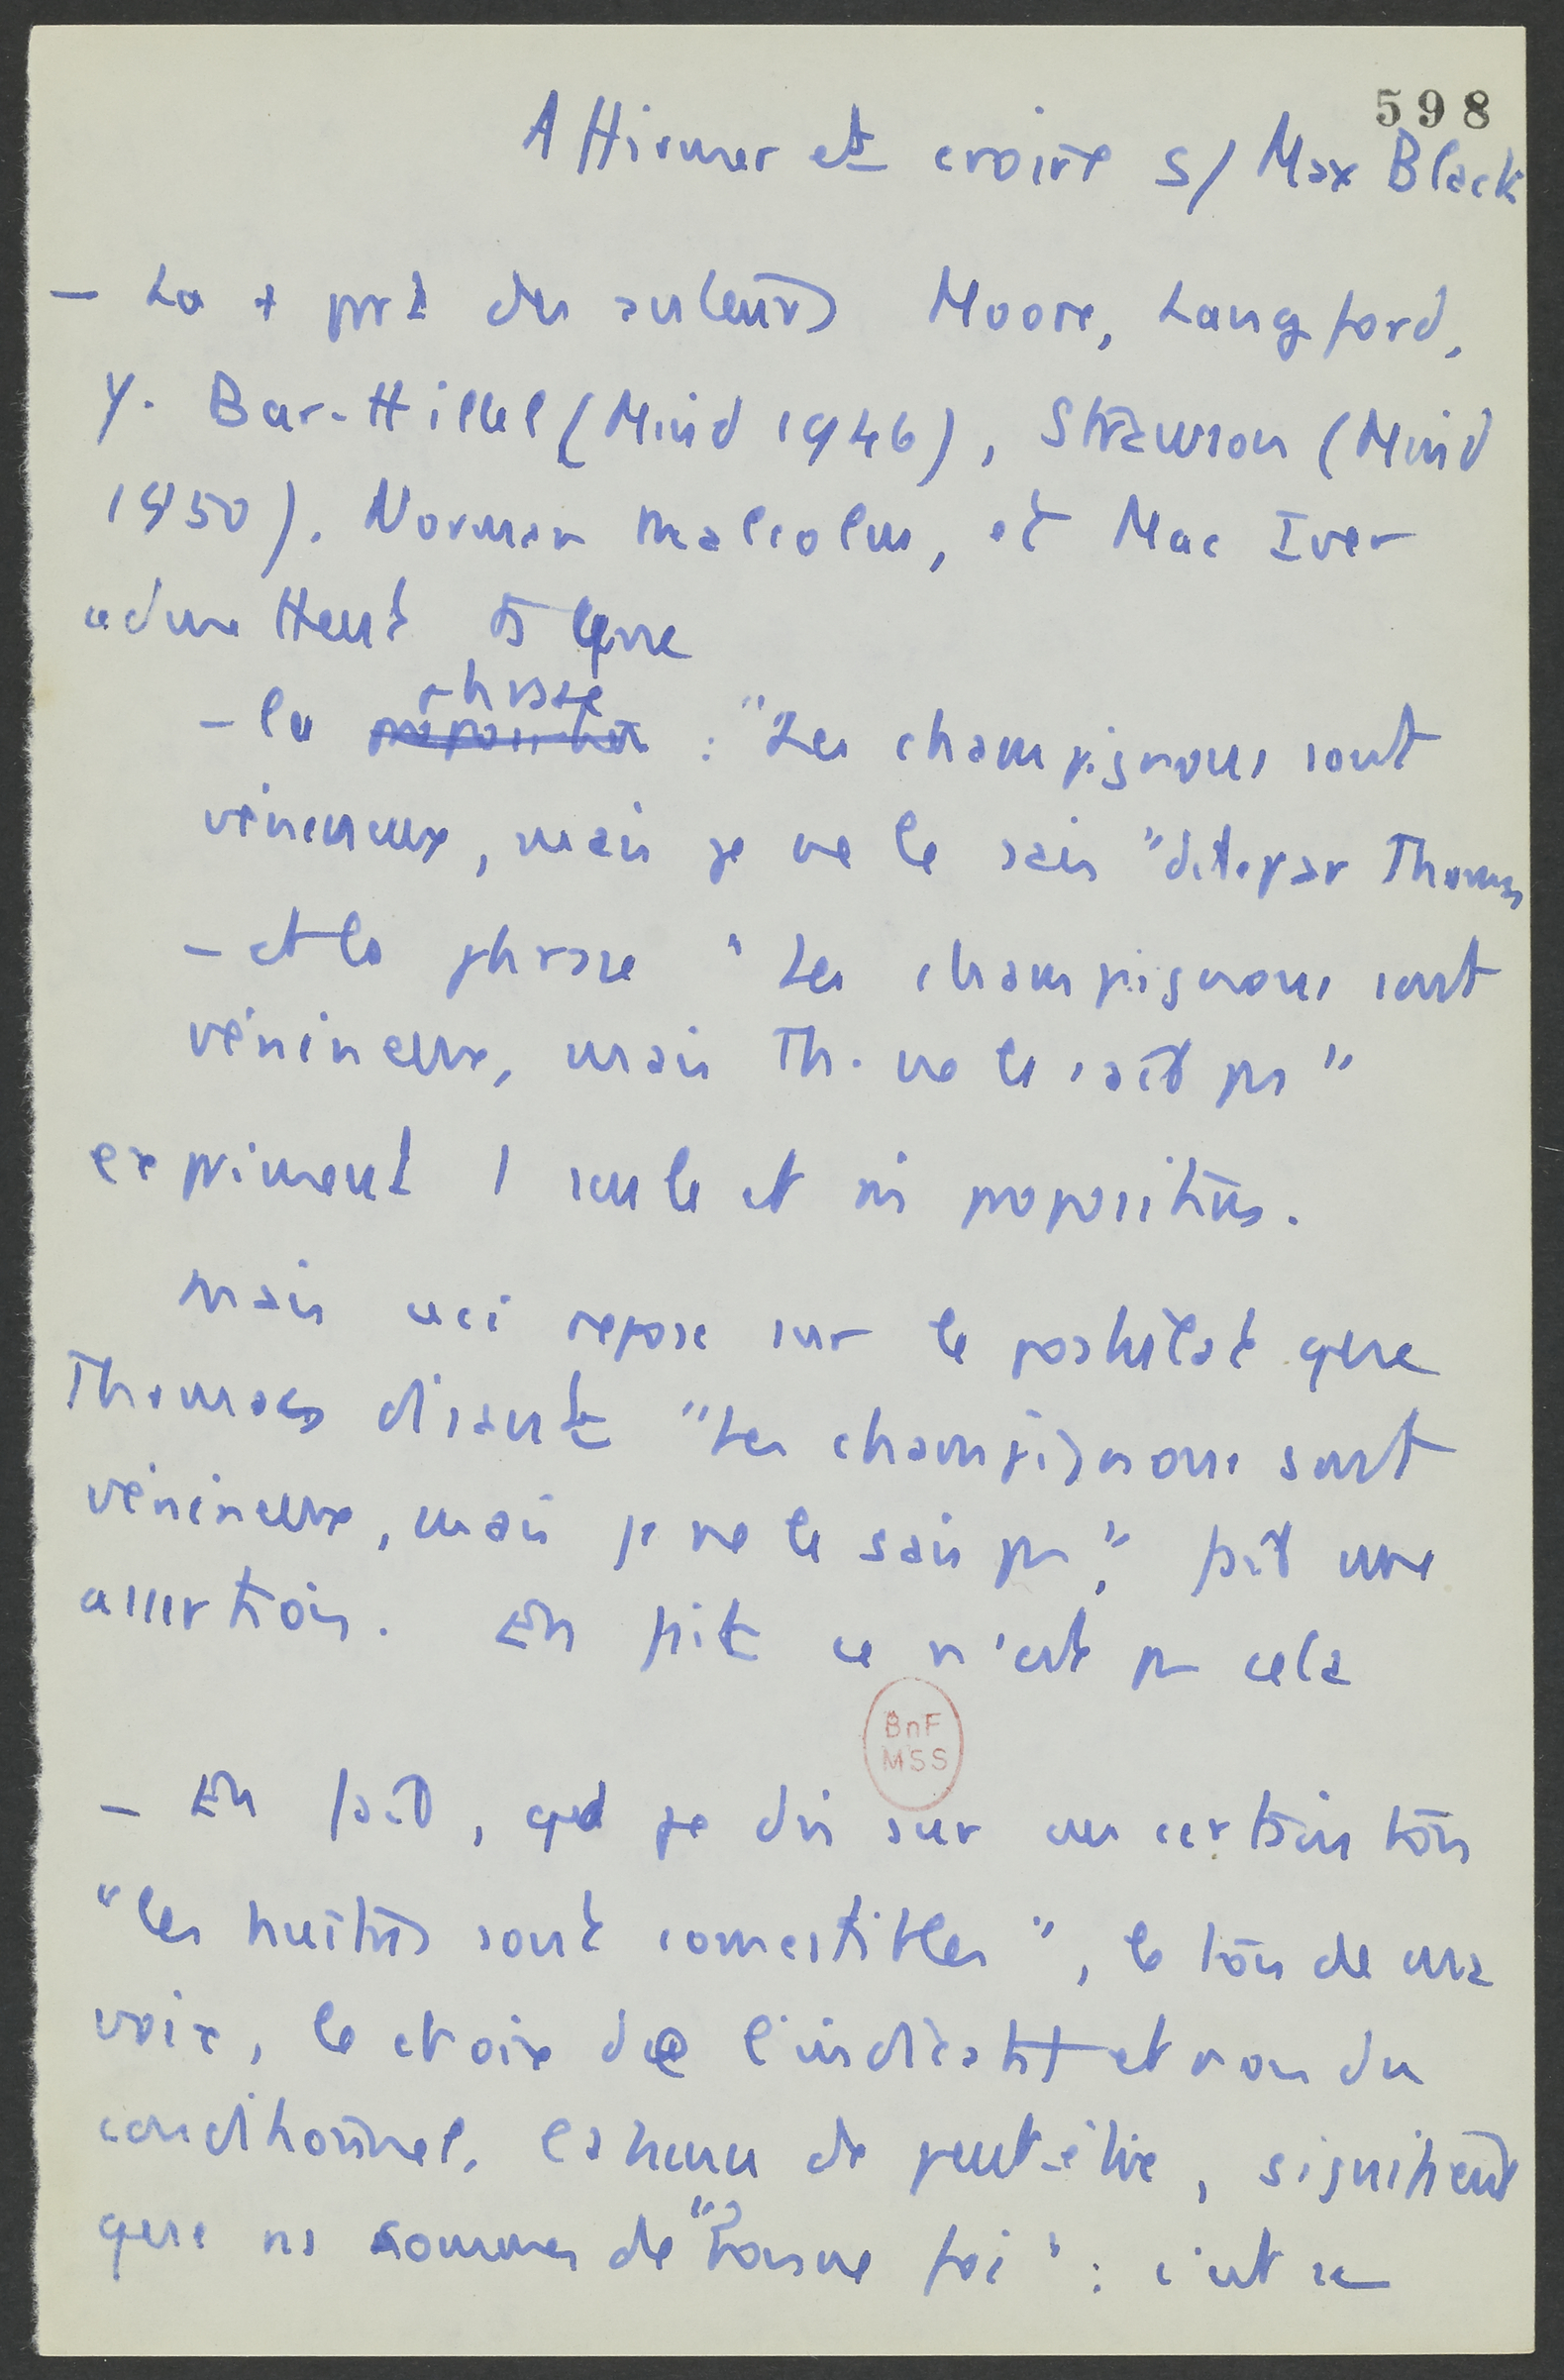 598
Affirmer et croire s/ Max Black
- La + prt des auteurs Moore, Langford,
Y. Bar-Hillel (Mind 1946), Strawson (Mind
1950). Norman Malcolm, et Mac Iver
admettent ts que
phrase
- la proposition : "Les champignons sont
vénéneux, mais je ne le sais" dite par Thomas
- et la phrase "Les champignons sont
vénéneux, mais Th. ne le sait pas"
expriment 1 seule et m proposition.
Mais ceci repose sur le postulat que
Thomas disant "Les champignons sont
vénéneux, mais je ne le sais pas", fait une
assertion. En fait ce n'est pas cela
BnF
MSS
- En fait, qd je dis sur un certain ton
"les huîtres sont comestibles", le ton de ma
voix, le choix de l'indicatif et non du
conditionnel, l'absence de peut-être, signifient
que ns sommes de "bonne foi" : c'est ce